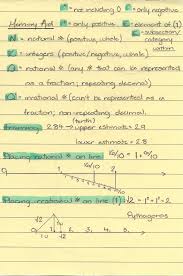 * = not including 0 - = only negative
Memory Aid + = only positive ∈ = element of (1)
ℕ = natural # (positive, whole) ⊂ = subsection/
category
within
ℤ = integers (positive/negative, whole)
ℚ = rational # (any # that can be represented
as a fraction; repeating decimal)
ℚ' = irrational # (can't be represented as a
fraction; non-repeating decimal)
(tenth)
2.84 → upper estimate = 2.9
lower estimate = 2.8
Placing rational # on line 16/10 = 1 6/10
0 1 16/10 2
Placing irrational # on line (1) √2 = 1² + 1²
√2 Pythagoras
0 1 √2 2 3 4 5